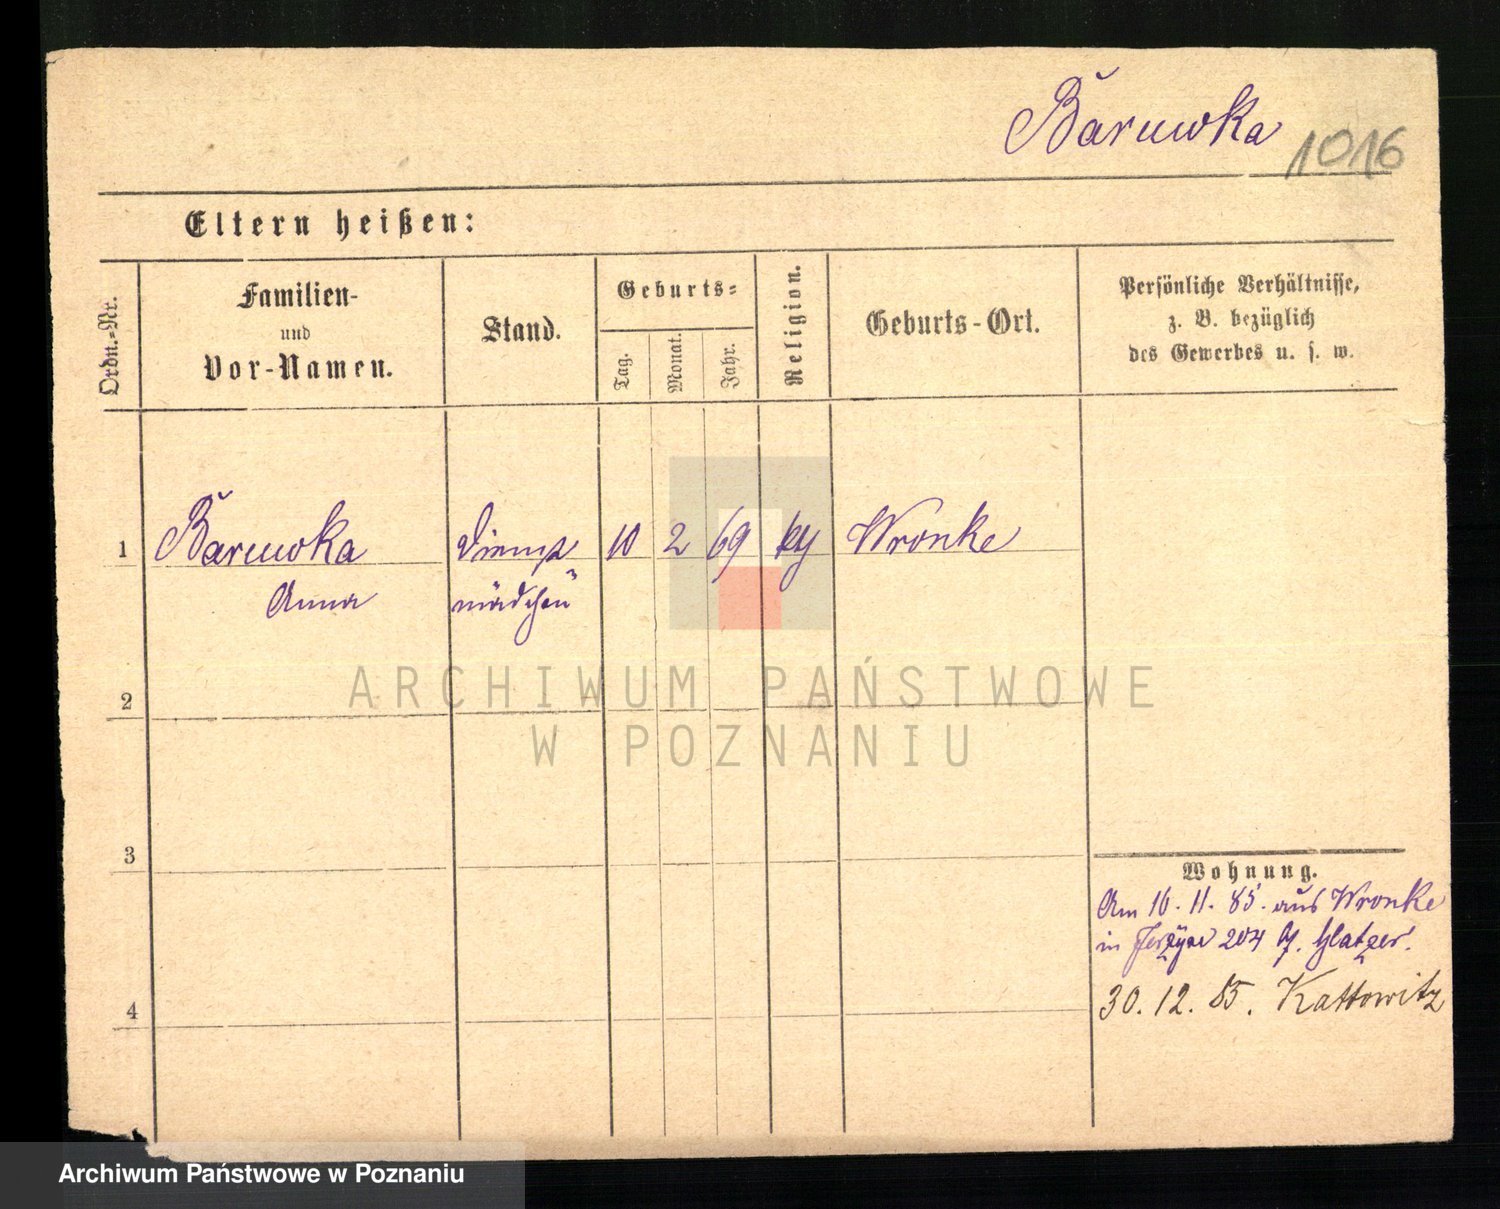 Baruwka
1016
Eltern heißen:
Ordn.-Nr.
Familien-
und
Vor-Namen.
Stand.
Geburts-
Tag.
Monat.
Jahr.
Religion.
Geburts-Ort.
Persönliche Verhältnisse,
z. B. bezüglich
des Gewerbes u. s. w.
1
Baruwka
Anna
Dienst
mädchen
10
2
69
Wronke
ARCHIWUM PAŃSTWOWE
W POZNANIU
2
3
4
Wohnung.
Am 16. 11. 85. aus Wronke
in 204 Glatzer.
30. 12. 85. Kattowitz
Archiwum Państwowe w Poznaniu